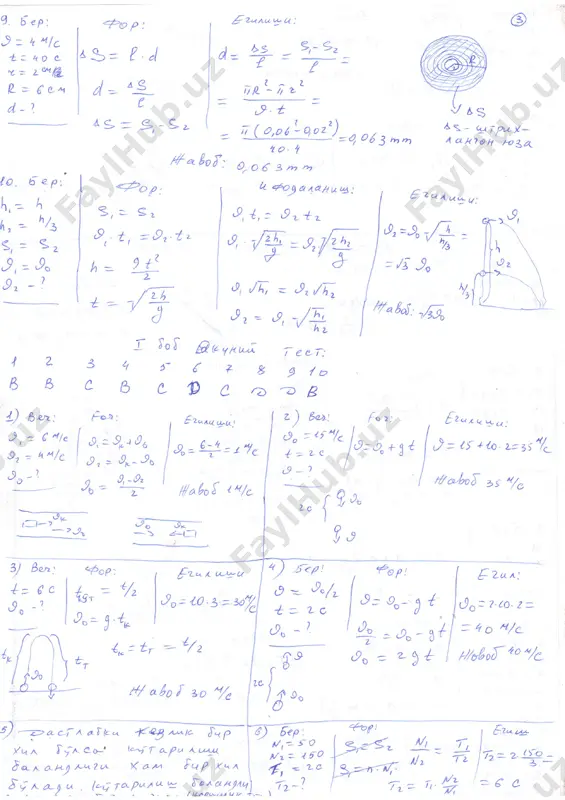 3
9. Бер:
ϑ = 4 м/с
t = 40 с
r = 2 см
R = 6 см
d - ?
Фор:
ΔS = l · d
d = ΔS/l
ΔS = S₁ - S₂
Ечилиши:
d = ΔS/l = (S₁ - S₂)/l =
= (πR² - πr²)/(ϑ · t) =
= π(0,06² - 0,02²)/(40 · 4) = 0,063 mm
Жавоб: 0,063 mm
R
ΔS
ΔS - штрих-
ланган юза
10. Бер:
h₁ = h
h₂ = h/3
S₁ = S₂
ϑ₁ = ϑ₀
ϑ₂ - ?
Фор:
S₁ = S₂
ϑ₁ · t₁ = ϑ₂ · t₂
h = gt²/2
t = √(2h/g)
Ифодаланиш:
ϑ₁ t₁ = ϑ₂ t₂
ϑ₁ · √(2h₁/g) = ϑ₂ √(2h₂/g)
ϑ₁ √h₁ = ϑ₂ √h₂
ϑ₂ = ϑ₁ √(h₁/h₂)
Ечилиши:
ϑ₂ = ϑ₀ · √(h/(h/3)) =
= √3 ϑ₀
Жавоб: √3 ϑ₀
ϑ₁
h
ϑ₂
I боб якуний тест:
1 2 3 4 5 6 7 8 9 10
B B C B C D C D D B
1) Бер:
ϑ₁ = 6 м/с
ϑ₂ = 4 м/с
ϑ₀ - ?
For:
ϑ₁ = ϑₖ + ϑ₀
ϑ₂ = ϑₖ - ϑ₀
ϑ₀ = (ϑ₁ - ϑ₂)/2
Ечилиши:
ϑ₀ = (6 - 4)/2 = 1 м/с
Жавоб 1 м/с
ϑₖ
ϑ₀
ϑ₀ ϑₖ
2) Бер:
ϑ₀ = 15 м/с
t = 2 с
ϑ - ?
For:
ϑ = ϑ₀ + gt
Ечилиши:
ϑ = 15 + 10 · 2 = 35 м/с
Жавоб 35 м/с
2с
ϑ₀
ϑ
3) Бер:
t = 6 с
ϑ₀ - ?
Фор:
t = t/2
ϑ₀ = g · tₖ
Ечилиши
ϑ₀ = 10 · 3 = 30 м/с
tₖ = tт = t/2
Жавоб 30 м/с
tₖ
ϑ₀
tт
4) Бер:
ϑ = ϑ₀/2
t = 2 с
ϑ₀ - ?
Фор:
ϑ = ϑ₀ - gt
ϑ₀/2 = ϑ₀ - gt
ϑ₀ = 2gt
Ечил:
ϑ₀ = 2 · 10 · 2 =
= 40 м/с
Жавоб 40 м/с
2с
ϑ
ϑ₀
5) Дастлабки тезлик бир
хил бўлса кўтарилиш
баландлиги хам бир хил
бўлади. Кўтарилиш баландли
6) Бер:
N₁ = 50
N₂ = 150
t₁ = 2 с
T₂ - ?
Фор:
S₁ = S₂
N₁/N₂ = T₁/T₂
T₂ = T₁ · N₂/N₁
Ечиш
T₂ = 2 · 150/ =
= 6 с
FaylHub.uz
FaylHub.uz
FaylHub.uz
FaylHub.uz